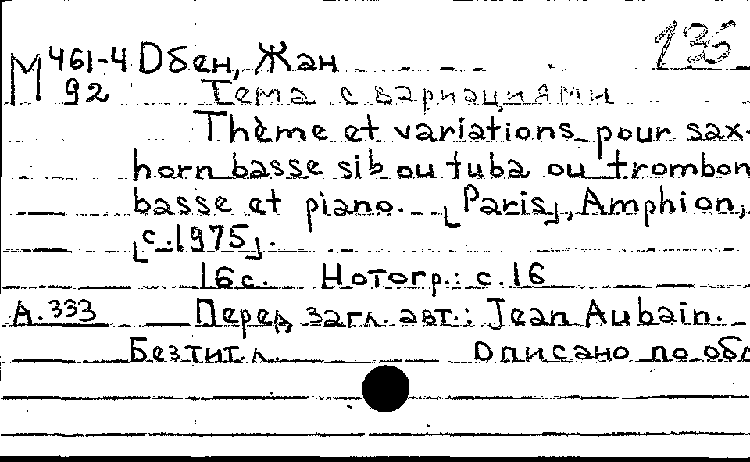 135
М 461-4 Обен, Жан
92 Тема с вариациями
Thème et variations pour sax-
horn basse sib ou tuba ou trombon
basse et piano. [Paris], Amphion,
[c.1975].
16с. Нотогр.: с.16
А.333 Перед загл. авт.: Jean Aubain.
Без тит. л. Описано по обл